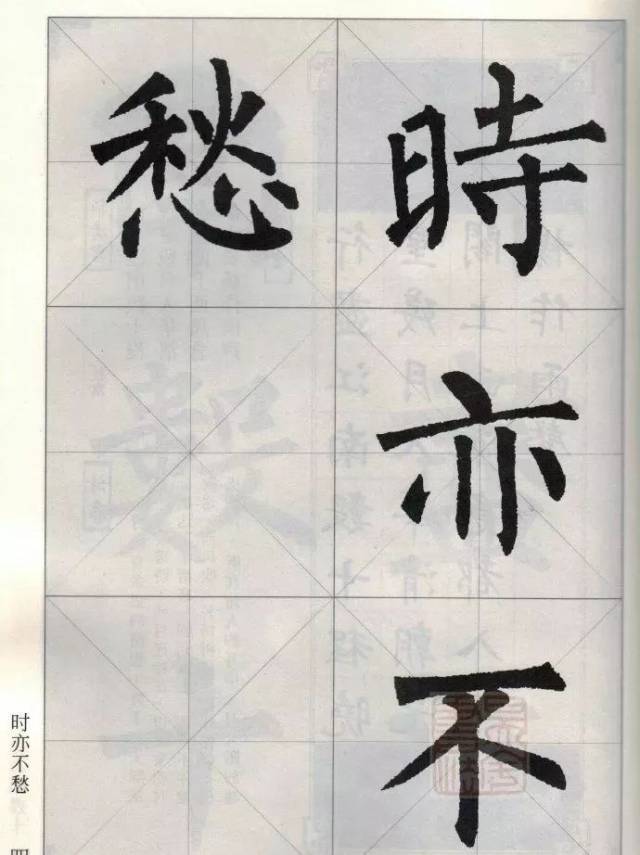 時亦不
愁
时亦不愁